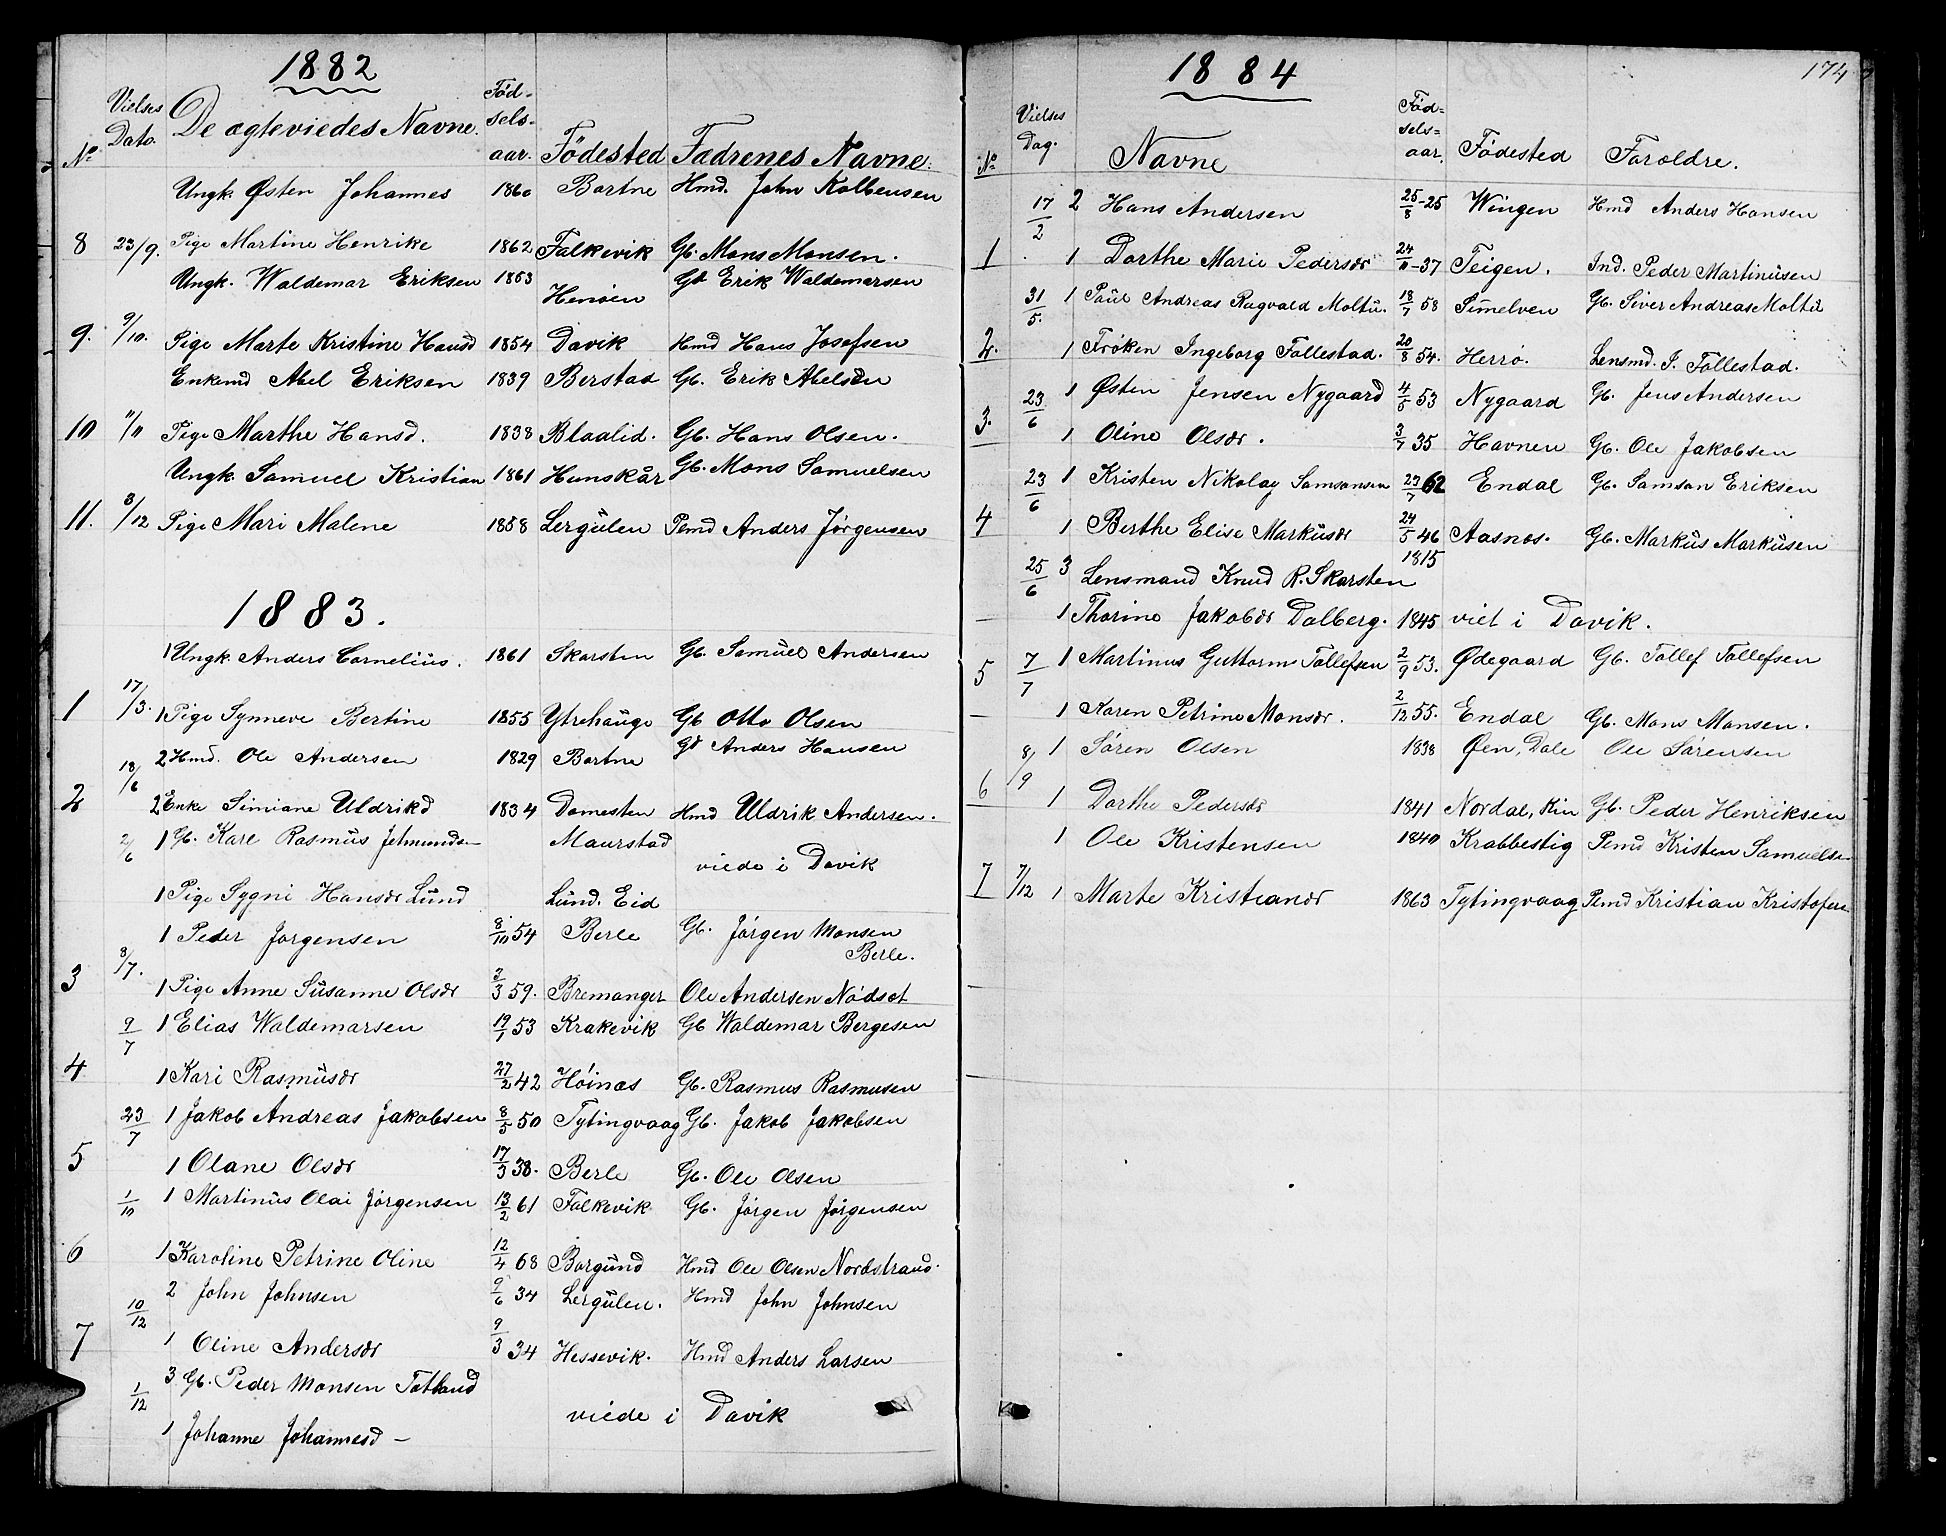 1882
No. Vielses Dato. De ægteviedes Navne. Fødselsaar. Födested Fædrenes Navne.
Ungk. Østen Johannes 1860 Bortne Hmd. John Kolbensen
8 23/9. Pige Martine Henrike 1862 Falkevik Gb. Mons Monsen.
Ungk. Waldemar Eriksen 1853 Henøen Gb Erik Waldemarsen
9. 9/10. Pige Marte Kristine Hansd 1854 Davik Hmd Hans Josefsen
Enkemd Abel Eriksen 1839 Berstad Gb. Erik Abelsen
10 11/11 Pige Marthe Hansd. 1838 Blaalid. Gb. Hans Olsen.
Ungk. Samuel Kristian 1861 Hunskår Gb. Mons Samuelsen
11. 3/12 Pige Mari Malene 1858 Lergülen Pemd Anders Jørgensen
1883.
1 Ungk. Anders Cornelius. 1861 Skorsten Gb. Samüel Andersen
1 17/3. 1 Pige Synneve Bertine 1855 Ytrehauge Gb Otto Olsen
2 Hmd. Ole Andersen 1829 Bortne Gb Anders Hansen
2 18/6 2 Enke Simiane Uldrikd 1834 Domesten Hmd Uldrik Andersen.
2/6 1 Gb. Karl Rasmüs Jetmunds— Maurstad
viede i Davik
1 Pige Sygni Hansdr Lünd Lünd. Eid
1 Peder Jørgensen 8/10 54 Berle Gb. Jørgen Monsen Berle.
3 8/7. 1 Pige Anne Süsanne Olsdr 3/3 59. Bremanger Ole Andersen Nödset
9/7 1 Elias Waldemarsen 19/1 53 Krakevik Gb Waldemar Bergesen
4 1 Kari Rasmüsdr 27/2 42 Höinæs Gb. Rasmus Rasmusen
23/7 1 Jakob Andreas Jakobsen 8/5 50 Tytingvaag Gb. Jakob Jakobsen
5 1 Olane Olsdr 17/3 38. Berle Gb. Ole Olsen
1/10 1 Martinüs Olai Jørgensen 13/2 61 Falkevik Gb. Jørgen Jørgensen
6 1 Karoline Petrine Oline 12/4 68 Borgünd Hmd Ole Olsen Nordstrand.
2 John Johnsen 9/6 34 Lergülen. Hmd John Johnsen
7 10/12 1 Oline Andersdr 9/3 34 Hessevik. Hmd Anders Larsen
1/12 3 Gb. Peder Monsen Totland
viede i Davik
1 Johanne Johannesd —
174
1884
No. Vielses Dag. Navne Fødselsaar. Födested Foroldre.
17/2 2 Hans Andersen 25/8-25 Wingen Hmd Anders Hansen
1 1 Dorthe Marie Pedersdr 24/11-37 Teigen. Ind. Peder Martinüsen
31/5. 1 Paül Andreas Ragvald Moltü. 18/7 58 Simelven Gb. Siver Andreas Moltü
2. 1 Frøken Ingeborg Follestad. 20/8 54. Herrø. Lensmd. I. Follestad.
23/6 1 Østen Jensen Nygaard 4/5 53 Nygaard Gb. Jens Andersen
3. 1 Oline Olsdr. 3/7 35 Havnen Gb. Ole Jakobsen
23/6 1 Kristen Nikolay Samsonsen 23/7 62 Endal Gb. Samson Eriksen
4 1 Berthe Elise Marküsdr 24/5 46 Aasnæs. Gb. Markus Markusen
25/6 3 Lensmand Knud R. Skorsten 1815
1 Thorine Jakobdr Dalberg. 1845 viet i Davik.
5 7/7 1 Martinus Guttorm Tollefsen 2/9 53. Ødegaard Gb. Tollef Tollefsen
1 Karen Petrine Monsdr. 2/12 55. Endal Gb. Mons Monsen.
8/9 1 Søren Olsen 1838 Øen, Dale Ole Sørensen
6 1 Dorthe Pedersdr 1841 Nordal, Kin Gb. Peder Henriksen
1 Ole Kristensen 1840 Krabbestig Pemd Kristen Samuelse
7 7/12 1 Marte Kristiandr 1863 Tytingvaag Pemd Kristian Kristofers